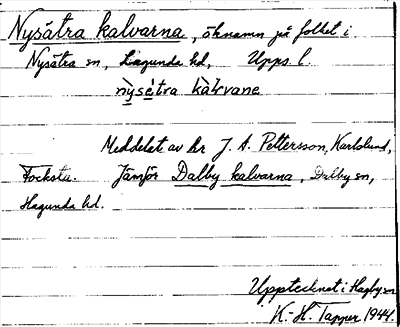 Nysätra kalvarna, öknamn på folket i
Nysätra sn, Lagunda hd, Upps. l.
nỳsètra kàlvane
Meddelat av hr J. A. Pettersson, Karlslund,
Focksta. Jämför Dalby kalvarna, Dalby sn,
Hagunda hd.
Upptecknat i Hagby sn
K.-H. Tagger 1944.